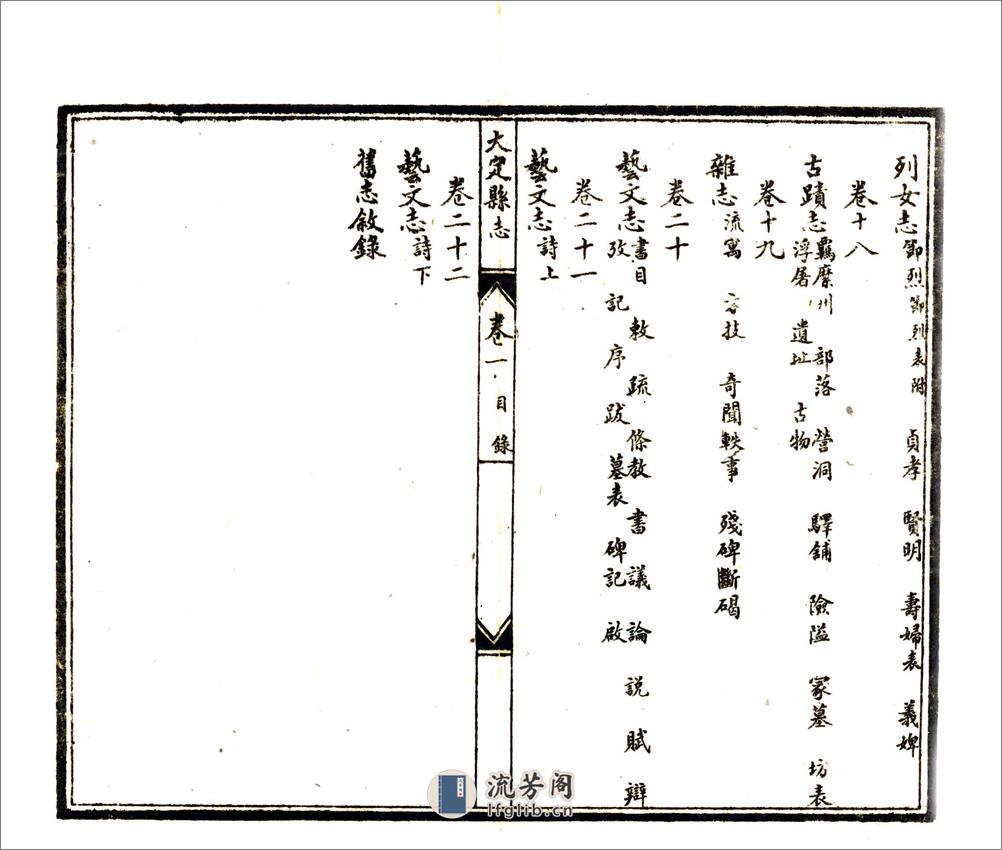 列女志 節烈 節烈表附 貞孝 賢明 壽婦表 義婢
卷十八
古蹟志 羈縻州 部落 營洞 驛鋪 險隘 冢墓 坊表
浮屠 遺址 古物
卷十九
雜志 流寓 方技 奇聞軼事 殘碑斷碣
卷二十
藝文志 書目 敕 疏 條教 書 議 論 説 賦 辯
攷 記 序 跋 墓表 碑記 啟
卷二十一
藝文志 詩上
大定縣志 卷一 目錄
卷二十二
藝文志 詩下
舊志敘錄
流芳阁
lfglib.cn